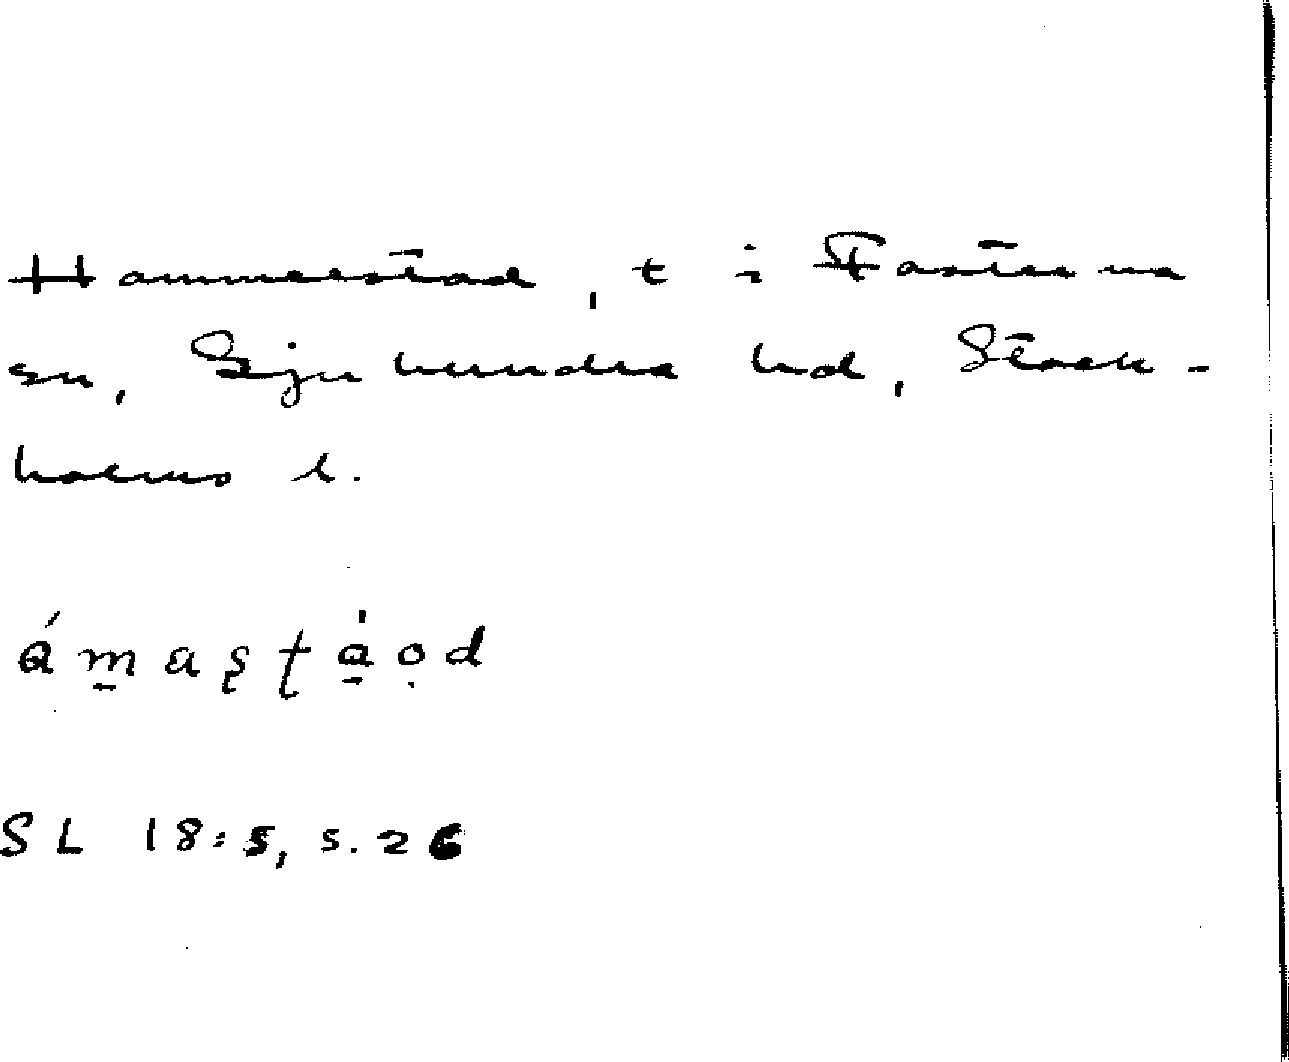 Hammarstad, t i Fasterna
sn, Sjuhundra hd, Stock-
holms l.
ámaşţá̱ọd
SL 18:5, s. 26